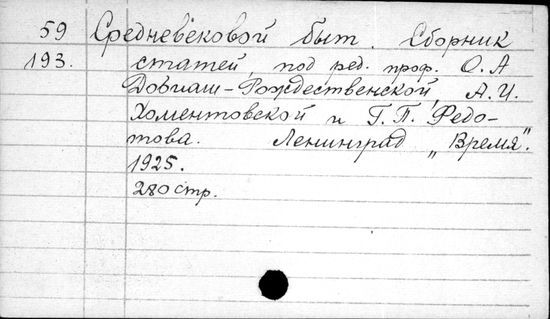 59 Средневековой быт. Сборник
193. статей, под ред. проф. О. А
Добиаш-Рождественской, А. И.
Хоментовской и Г. П. Федо-
това. Ленинград „Время".
1925.
280 стр.